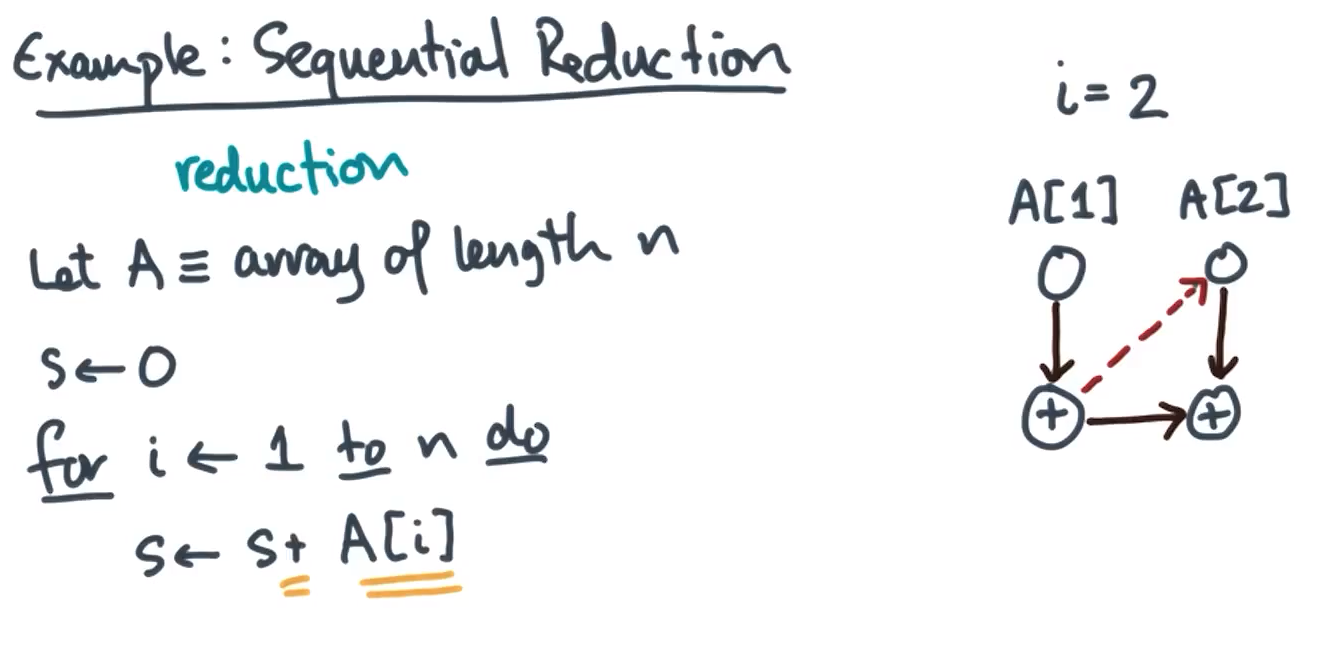 Example: Sequential Reduction
reduction
Let A ≡ array of length n
s ← 0
for i ← 1 to n do
s ← s + A[i]
i = 2
A[1] A[2]
+ +